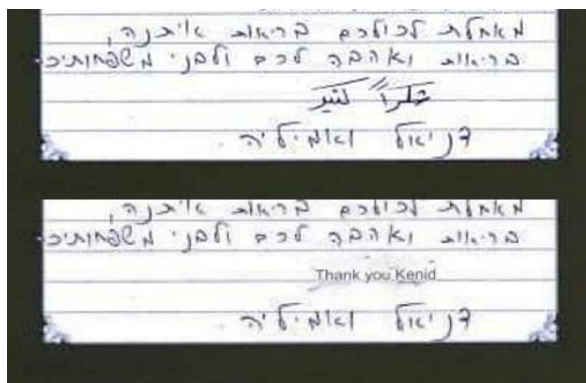 מאחלת לכולכם בריאות איתנה,
בריאות ואהבה לכם ולבני משפחותיכ
شكراً كثير
דניאל ואמיליה
מאחלת לכולכם בריאות איתנה,
בריאות ואהבה לכם ולבני משפחותיכ
Thank you Kenid
דניאל ואמיליה